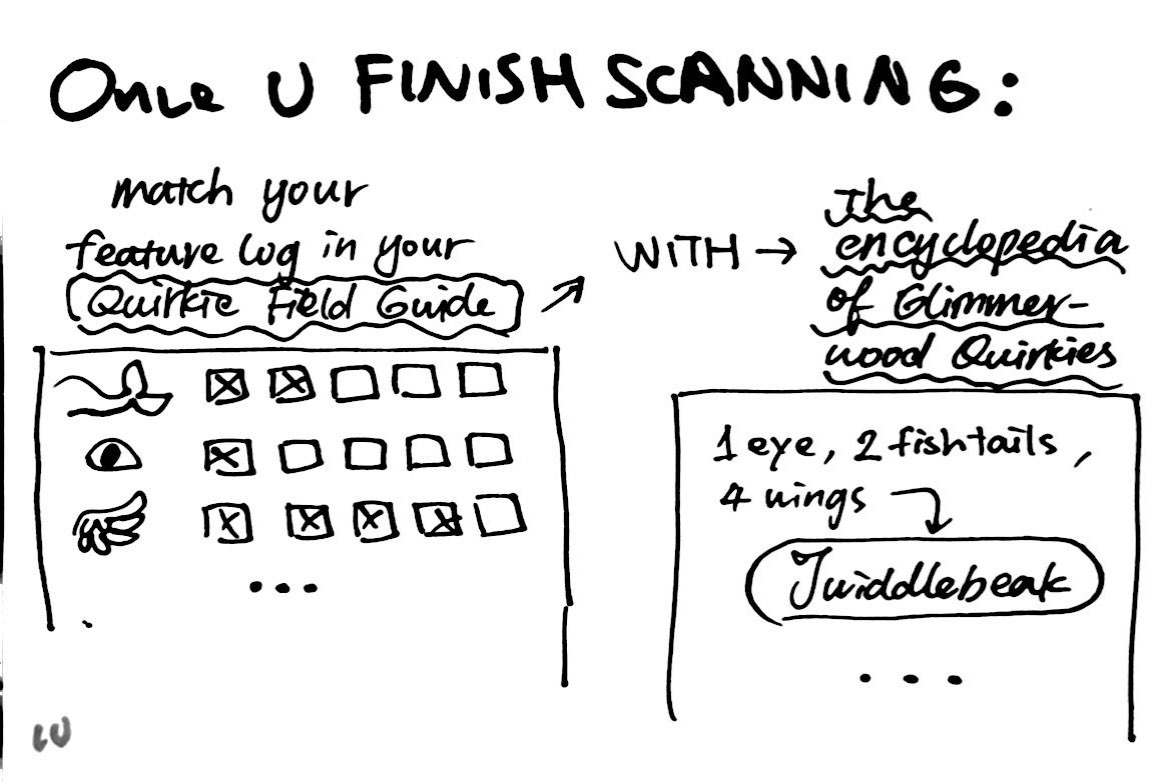 Once U FINISH SCANNING:
match your
feature log in your
Quirkie Field Guide
WITH →
The
encyclopedia
of Glimmer-
wood Quirkies
...
1 eye, 2 fishtails,
4 wings
Twiddlebeak
...